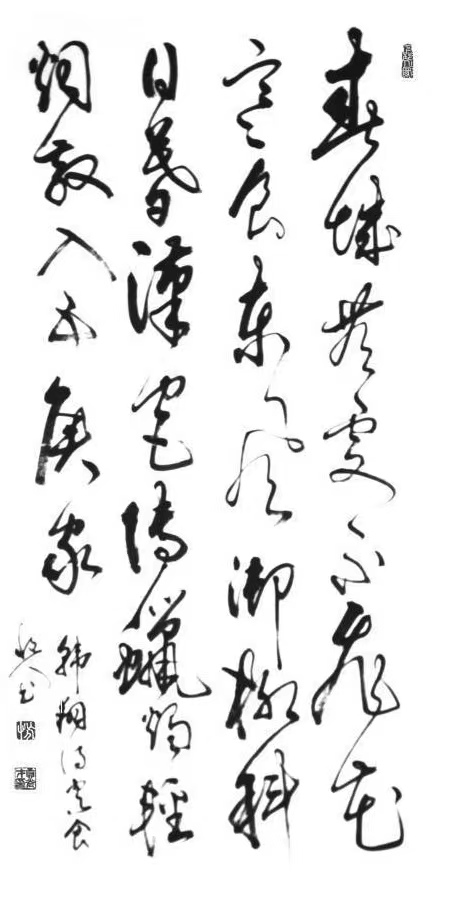 春城無處不飛花
寒食東風御柳斜
日暮漢宮傳蠟燭輕
烟散入五侯家
韓翃詩寒食